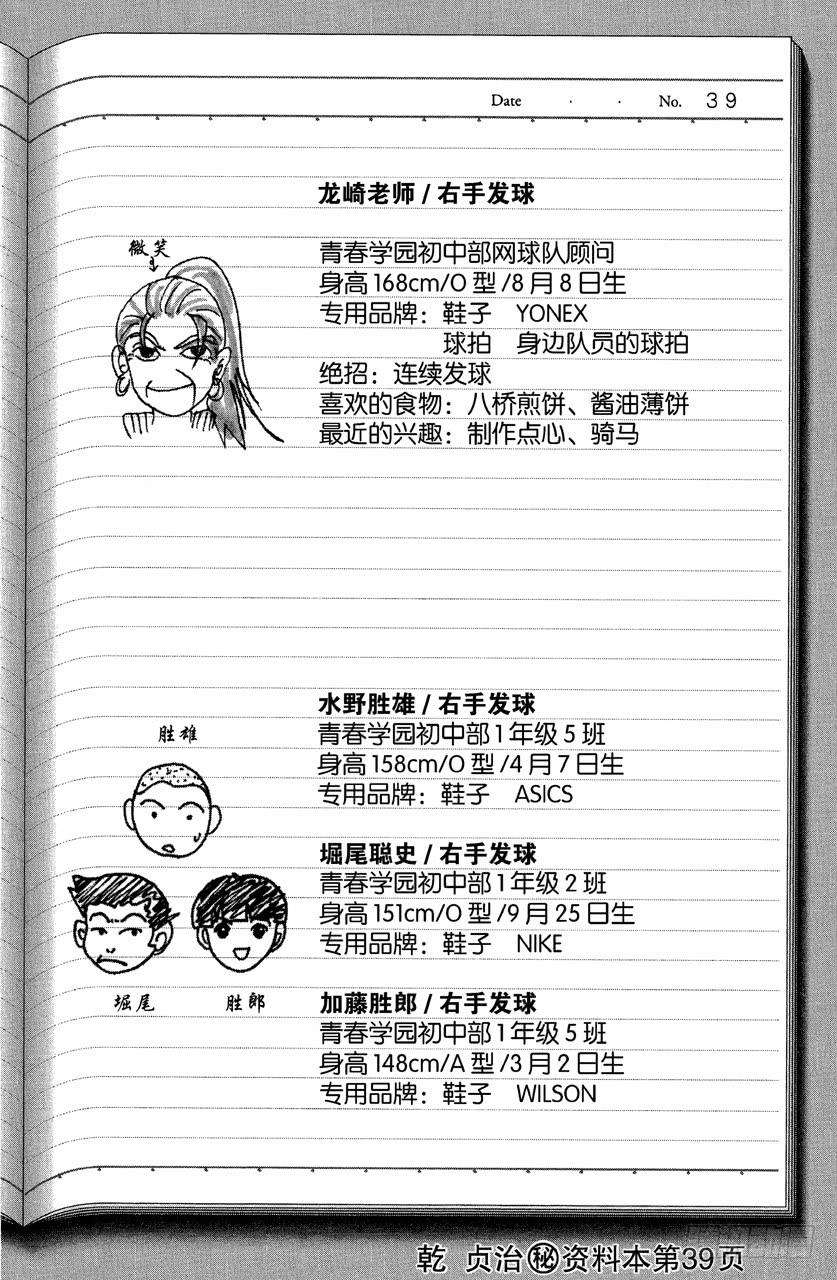 Date . . No. 39
龙崎老师/右手发球
微笑
青春学园初中部网球队顾问
身高168cm/O型/8月8日生
专用品牌：鞋子 YONEX
球拍 身边队员的球拍
绝招：连续发球
喜欢的食物：八桥煎饼、酱油薄饼
最近的兴趣：制作点心、骑马
水野胜雄/右手发球
青春学园初中部1年级5班
身高158cm/O型/4月7日生
专用品牌：鞋子 ASICS
胜雄
堀尾聪史/右手发球
青春学园初中部1年级2班
身高151cm/O型/9月25日生
专用品牌：鞋子 NIKE
堀尾 胜郎
加藤胜郎/右手发球
青春学园初中部1年级5班
身高148cm/A型/3月2日生
专用品牌：鞋子 WILSON
乾 贞治㊙资料本第39页